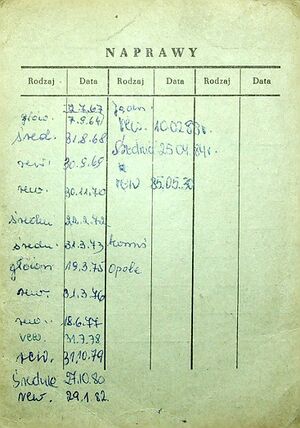 NAPRAWY
Rodzaj Data Rodzaj Data Rodzaj Data
głów. 7.9.64
śred. 31.8.68 rew. 10.02.83r.
rew. 30.9.69 Średnia 25.04.84r.
rew. 30.11.70 rew 85.05.30
średn
średn. 31.3.73
główn 19.3.75 Opole
rew. 31.3.76
rew. 18.6.77
rew. 31.7.78
rew. 31.10.79
Średnie 27.10.80
rew. 29.1.82.